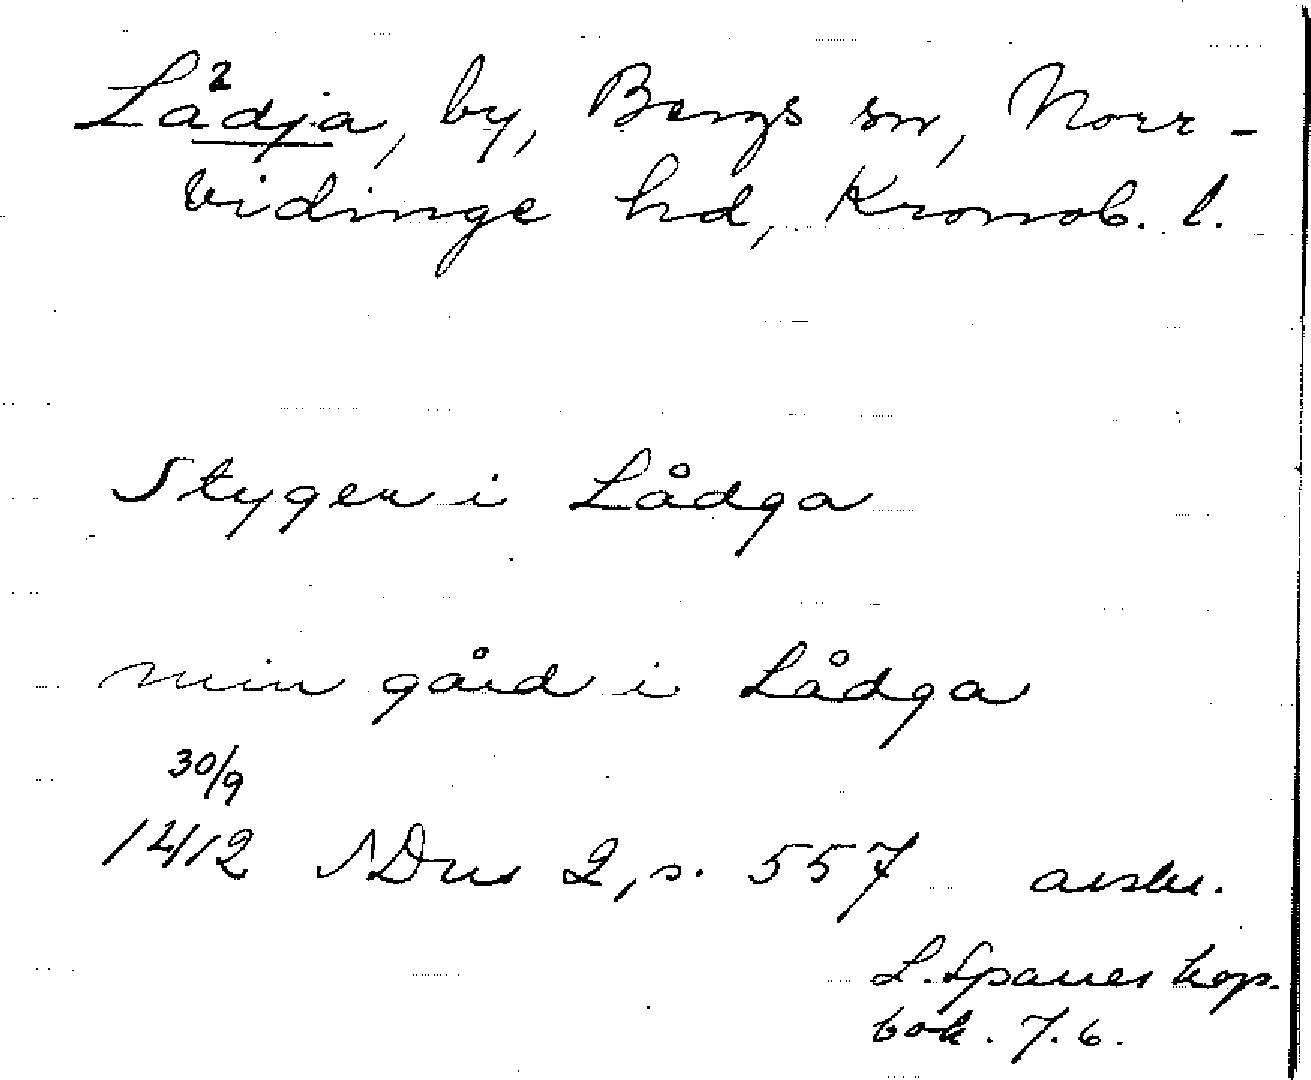 Lå²dja, by, Bergs sn, Norr-
vidinge hd, Kronob. l.
Stygen i Lådga
min gård i Lådga
30/9
1412 SDns 2, s. 557 avskr.
L. Sparres kop.
bok. 7.6.